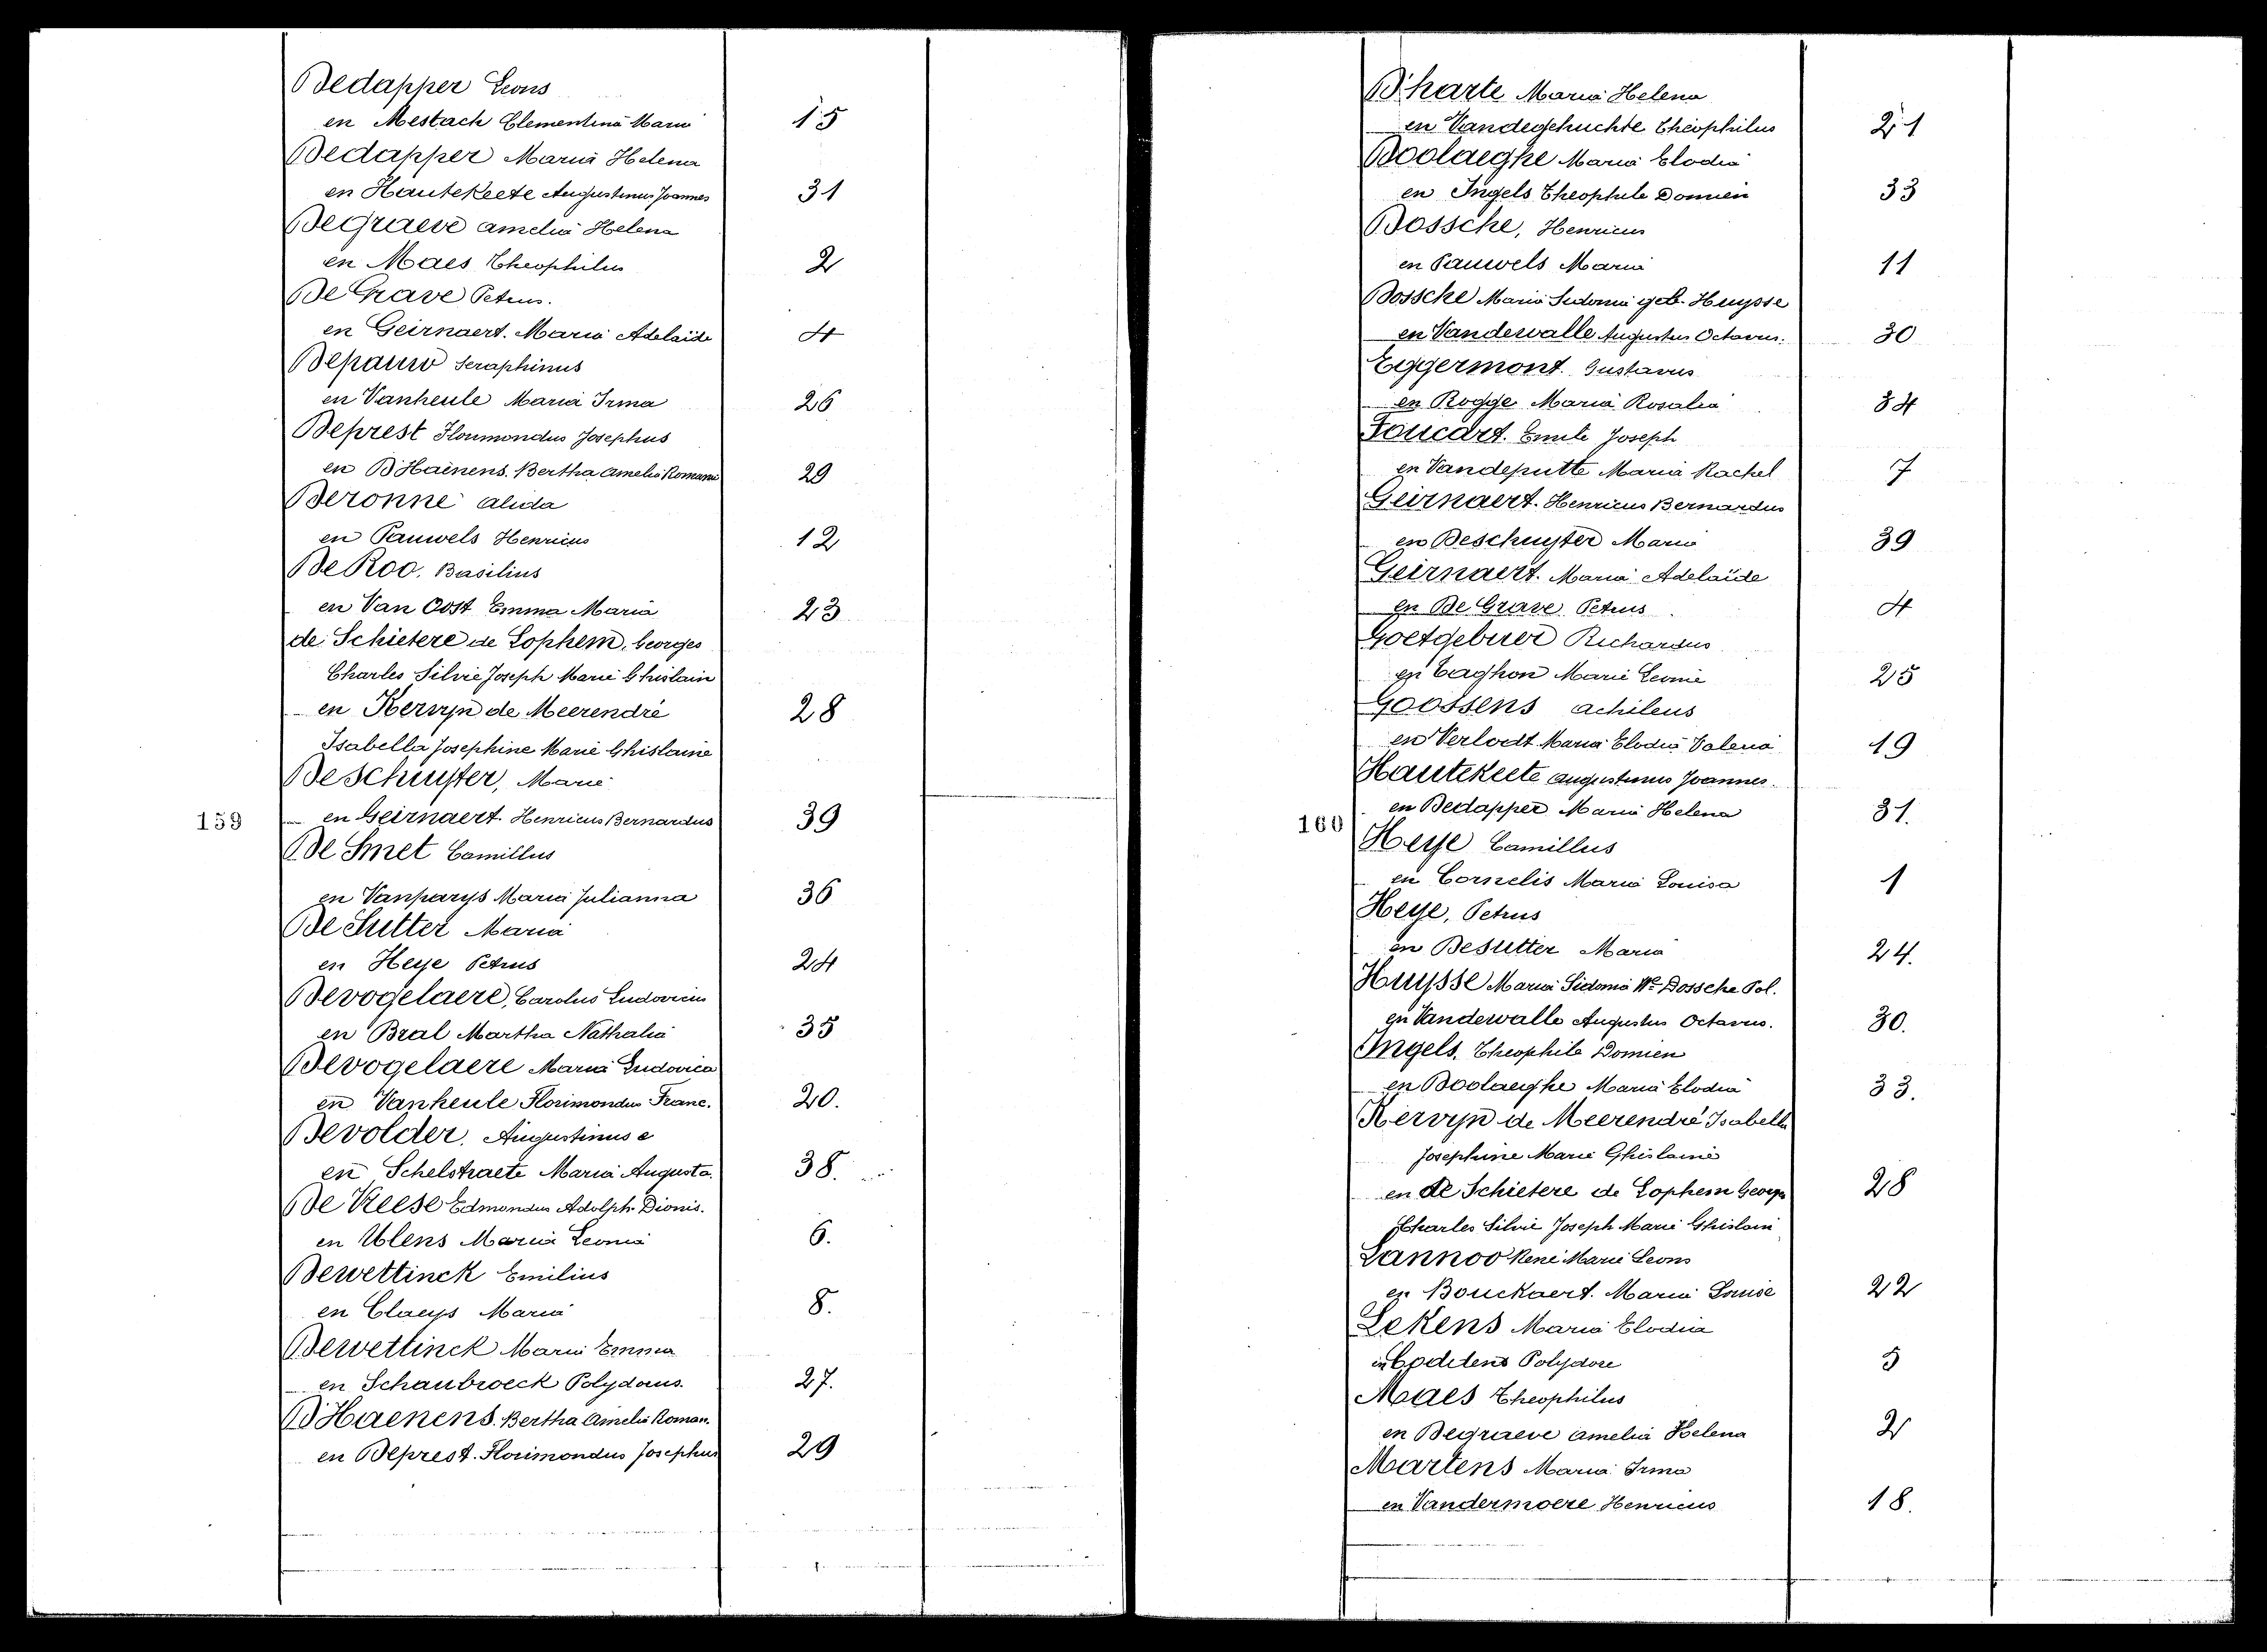 Dedapper Leons
en Mestach Clementina Maria 15
Dedapper Maria Helena
en Hautekeete Augustinus Joannes 31
Degraeve Amelia Helena
en Maes Theophilus 2
De Grave Petrus.
en Geirnaert. Maria Adelaïde 4
Depauw Seraphinus
en Vanheule Maria Irma 26
Deprest Florimondus Josephus
en D'Haenens. Bertha Amelia Romanie 29
Deronne Alida
en Pauwels Henricus 12
De Roo. Basilius
en Van Oost Emma Maria 23
de Schietere de Lophem, Georges
Charles Silvie Joseph Marie Ghislain
en Kervyn de Meerendré 28
Isabella Josephine Marie Ghislaine
Deschuyter, Marie
159 en Geirnaert. Henricus Bernardus 39
De Smet Camillus
en Vanparys Maria Julianna 36
De Sutter Maria
en Heye Petrus 24
Devogelaere, Carolus Ludovicus
en Bral Martha Nathalia 35
Devogelaere Maria Ludovica
en Vanheule Florimondus Franc. 20.
Devolder. Augustinus e
en Schelstraete Maria Augusta. 38.
De Vreese Edmondus Adolph. Dionis.
en Ulens Maria Leonia 6.
Dewettinck Emilius
en Claeys Maria 8.
Dewettinck Maria Emma
en Schaubroeck Polydorus. 27.
D'Haenens. Bertha Amelia Roman.
en Deprest. Florimondus Josephus 29
D'harte Maria Helena
en Vandegehuchte Théophilus 21
Doolaeghe Maria Elodia
en Ingels Theophile Domien 33
Dossche, Henricus
en Pauwels Maria 11
Dossche Maria Sidonia geb. Huysse
en Vandewalle Augustus Octavus. 30
Eggermont. Gustavus
en Rogge Maria Rosalia 34
Foucart. Emile Joseph
en Vandeputte Maria Rachel 7
Geirnaert. Henricus Bernardus
en Deschuyter Maria 39
Geirnaert. Maria Adelaïde
en De Grave Petrus 4
Goetgebuer Richardus
en Taghon Marie Leonie 25
Goossens Achileus
en Verlodt Maria Elodia Valeria 19
Hautekeete Augustinus Joannes.
en Dedapper Maria Helena 31.
160
Heye Camillus
en Cornelis Maria Louisa 1
Heye, Petrus
en Desutter Maria 24.
Huysse Maria Sidonia We Dossche Pol.
en Vandewalle Augustus Octavus. 30.
Ingels. Theophile Domien
en Doolaeghe Maria Elodia 33.
Kervyn de Meerendré Isabella
Josephine Marie Ghislaine
en de Schietere de Lophem Georges 28
Charles Silvie Joseph Marie Ghislain
Lannoo René Marie Leons
en Bouckaert. Maria Louise 22
Lekens Maria Elodia
en Coddens Polydore 5
Maes Theophilus
en Degraeve Amelia Helena 2
Martens Maria Irma
en Vandermoere Henricus 18.